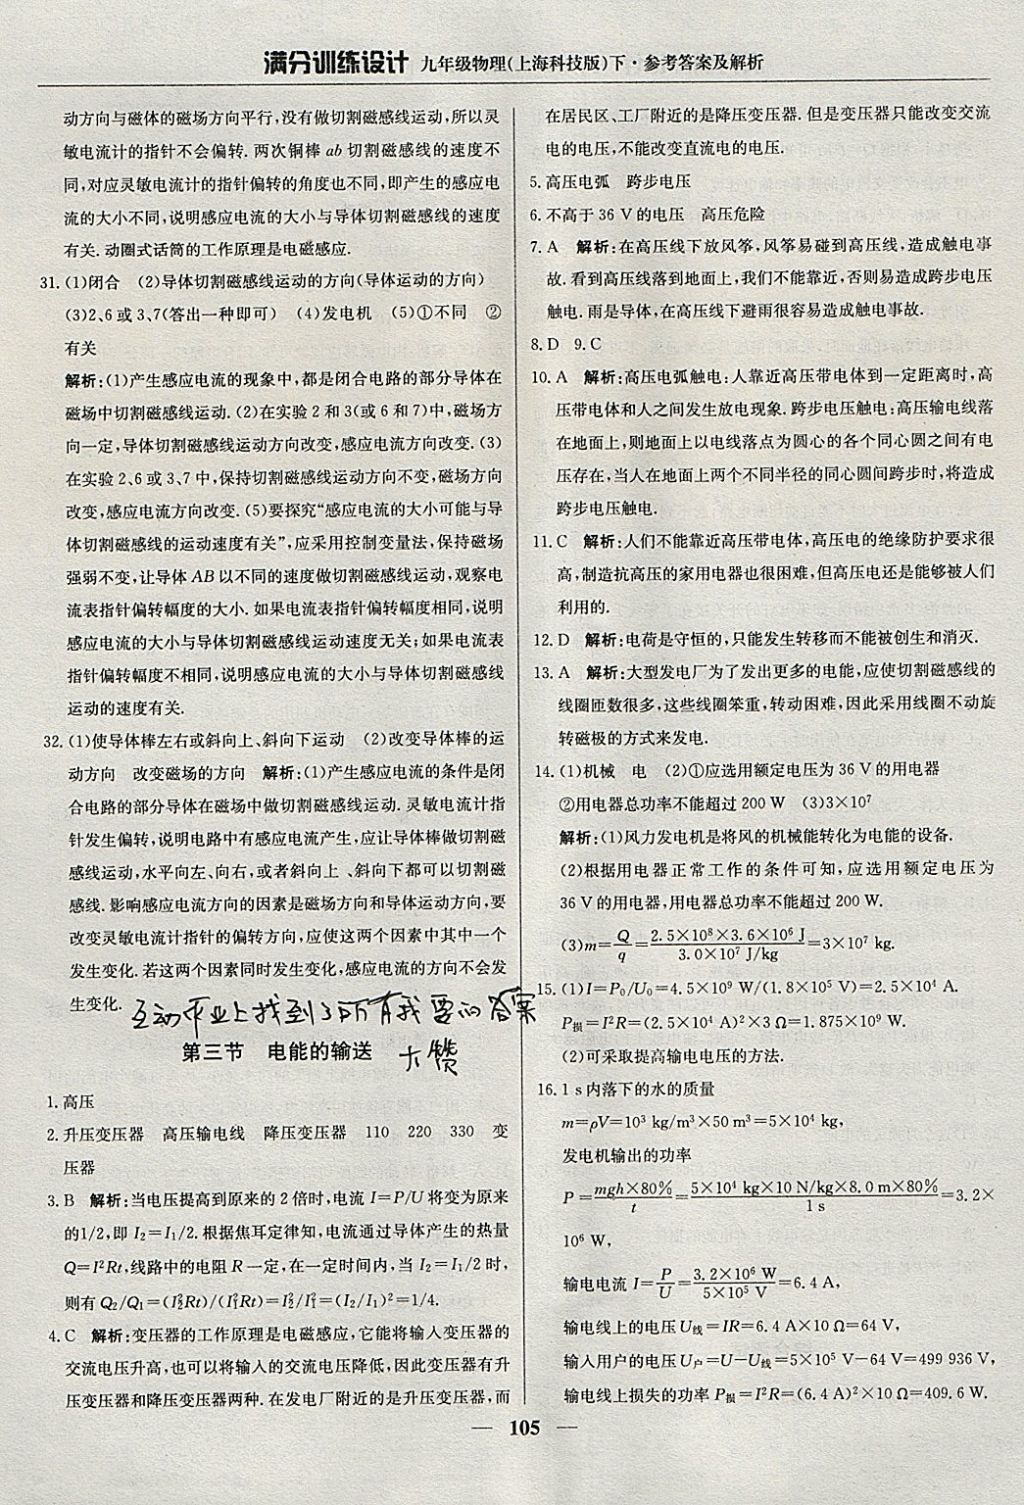 满分训练设计 九年级物理(上海科技版)下·参考答案及解析
动方向与磁体的磁场方向平行,没有做切割磁感线运动,所以灵
敏电流计的指针不会偏转.两次铜棒 ab 切割磁感线的速度不
同,对应灵敏电流计的指针偏转的角度也不同,即产生的感应电
流的大小不同,说明感应电流的大小与导体切割磁感线的速度
有关.动圈式话筒的工作原理是电磁感应.
31.(1)闭合 (2)导体切割磁感线运动的方向(导体运动的方向)
(3)2、6 或 3、7(答出一种即可) (4)发电机 (5)①不同 ②
有关
解析:(1)产生感应电流的现象中,都是闭合电路的部分导体在
磁场中切割磁感线运动.(2)在实验 2 和 3(或 6 和 7)中,磁场方
向一定,导体切割磁感线运动方向改变,感应电流方向改变.(3)
在实验 2、6 或 3、7 中,保持切割磁感线运动方向不变,磁场方向
改变,感应电流方向改变.(5)要探究“感应电流的大小可能与导
体切割磁感线的运动速度有关”,应采用控制变量法,保持磁场
强弱不变,让导体 AB 以不同的速度做切割磁感线运动,观察电
流表指针偏转幅度的大小.如果电流表指针偏转幅度相同,说明
感应电流的大小与导体切割磁感线运动速度无关;如果电流表
指针偏转幅度不相同,说明感应电流的大小与导体切割磁感线
运动的速度有关.
32.(1)使导体棒左右或斜向上、斜向下运动 (2)改变导体棒的运
动方向 改变磁场的方向 解析:(1)产生感应电流的条件是闭
合电路的部分导体在磁场中做切割磁感线运动.灵敏电流计指
针发生偏转,说明电路中有感应电流产生,应让导体棒做切割磁
感线运动,水平向左、向右,或者斜向上、斜向下都可以切割磁
感线.影响感应电流方向的因素是磁场方向和导体运动方向,要
改变灵敏电流计指针的偏转方向,应使这两个因素中其中一个
发生变化.若这两个因素同时发生变化,感应电流的方向不会发
生变化.
互动作业上找到了所有我要的答案
大赞
第三节 电能的输送
1.高压
2.升压变压器 高压输电线 降压变压器 110 220 330 变
压器
3.B 解析:当电压提高到原来的 2 倍时,电流 I=P/U 将变为原来
的1/2,即 I₂=I₁/2.根据焦耳定律知,电流通过导体产生的热量
Q=I²Rt,线路中的电阻 R 一定,在一定时间内,当 I₂=I₁/2 时,
则有 Q₂/Q₁=(I₂²Rt)/(I₁²Rt)=I₂²/I₁²=(I₂/I₁)²=1/4.
4.C 解析:变压器的工作原理是电磁感应,它能将输入变压器的
交流电压升高,也可以将输入的交流电压降低,因此变压器有升
压变压器和降压变压器两种.在发电厂附近的是升压变压器,而
在居民区、工厂附近的是降压变压器.但是变压器只能改变交流
电的电压,不能改变直流电的电压.
5.高压电弧 跨步电压
6.不高于 36 V 的电压 高压危险
7.A 解析:在高压线下放风筝,风筝易碰到高压线,造成触电事
故.看到高压线落到地面上,我们不能靠近,否则易造成跨步电压
触电.雨是导体,在高压线下避雨很容易造成触电事故.
8.D 9.C
10.A 解析:高压电弧触电:人靠近高压带电体到一定距离时,高
压带电体和人之间发生放电现象.跨步电压触电:高压输电线落
在地面上,则地面上以电线落点为圆心的各个同心圆之间有电
压存在,当人在地面上两个不同半径的同心圆间跨步时,将造成
跨步电压触电.
11.C 解析:人们不能靠近高压带电体,高压电的绝缘防护要求很
高,制造抗高压的家用电器也很困难,但高压电还是能够被人们
利用的.
12.D 解析:电荷是守恒的,只能发生转移而不能被创生和消灭.
13.A 解析:大型发电厂为了发出更多的电能,应使切割磁感线的
线圈匝数很多,这些线圈笨重,转动困难,因此采用线圈不动旋
转磁极的方式来发电.
14.(1)机械 电 (2)①应选用额定电压为 36 V 的用电器
②用电器总功率不能超过 200 W (3)3×10⁷
解析:(1)风力发电机是将风的机械能转化为电能的设备.
(2)根据用电器正常工作的条件可知,应选用额定电压为
36 V 的用电器,用电器总功率不能超过 200 W.
(3)m=Q/q=2.5×10⁸×3.6×10⁶ J/3.0×10⁷ J/kg=3×10⁷ kg.
15.(1)I=P₀/U₀=4.5×10⁹ W/(1.8×10⁵ V)=2.5×10⁴ A.
P损=I²R=(2.5×10⁴ A)²×3 Ω=1.875×10⁹ W.
(2)可采取提高输电电压的方法.
16.1 s 内落下的水的质量
m=ρV=10³ kg/m³×50 m³=5×10⁴ kg,
发电机输出的功率
P=mgh×80%/t=5×10⁴ kg×10 N/kg×8.0 m×80%/1 s=3.2×
10⁶ W,
输电电流 I=P/U=3.2×10⁶ W/5×10⁵ V=6.4 A,
输电线上的电压 U线=IR=6.4 A×10 Ω=64 V,
输入用户的电压 U户=U-U线=5×10⁵ V-64 V=499 936 V,
输电线上损失的功率 P损=I²R=(6.4 A)²×10 Ω=409.6 W.
— 105 —